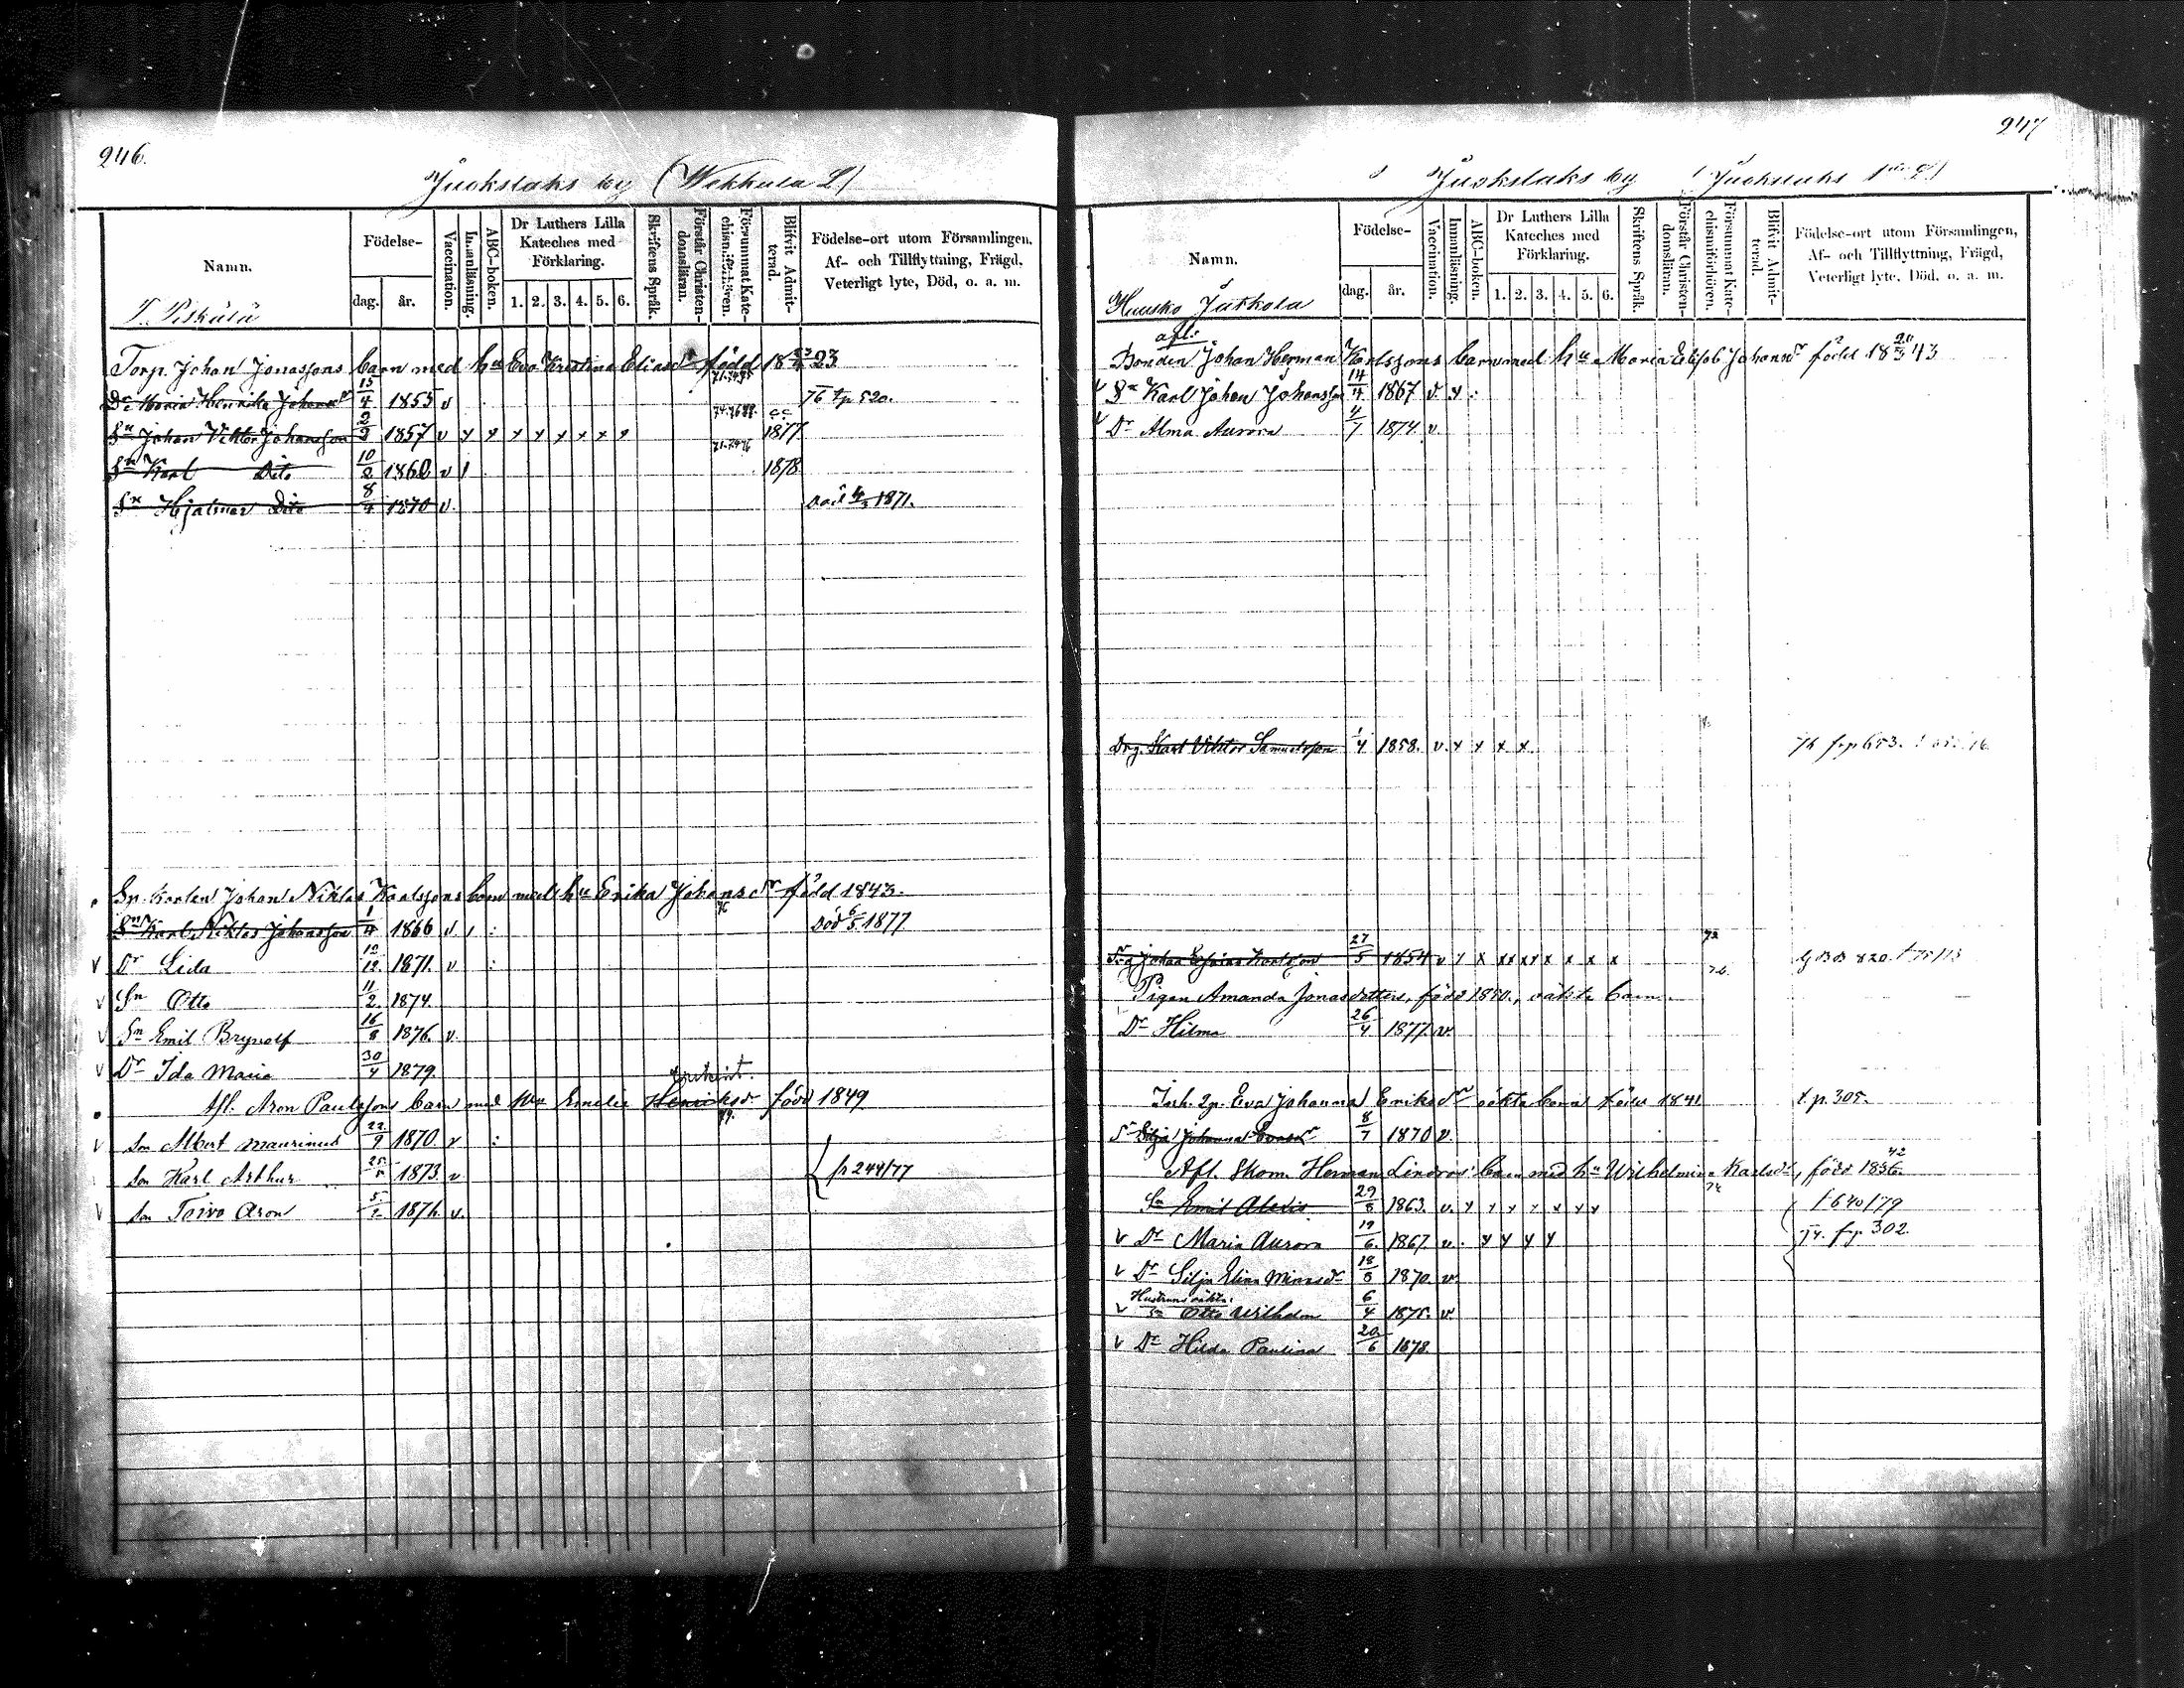 246.
Juokslaks by (Wekkula L)
Namn.
Födelse-
dag.
år.
Vaccination.
Innanläsning.
ABC-boken.
Dr Luthers Lilla Kateches med Förklaring.
1. 2. 3. 4. 5. 6.
Skriftens Språk.
Förstår Christen-domsläran.
Försummat Kate-chismiförhören.
Blifvit Admit-terad.
Födelse-ort utom Församlingen, Af- och Tillflyttning, Frägd, Veterligt lyte, Död, o. a. m.
T. Piskülä
Torp. Johan Jonassons barn med hu Eva Kristina Eliasdr född 18 23
Dr Maria Henrika Johansdr 15/4 1855 v 76 tp 520.
Sn Johan Viktor Johansson 2/2 1857 v x x x x x x x x 1877.
Sn Karl Dito 10/2 1860 v 1 1878.
Sn Hjalmar Dito 8/4 1870 v. Död 1871.
Johan Niklas Karlssons barn med hu Erika Johansdr född 1843.
Sn Karl Niklas Johansson 1/4 1866 v 1 : Död 6/5 1877
v Dr Lida 12/12 1871. v :
v Sn Otto 11/2. 1874.
v Sn Emil Brynolf 16/8 1876. v.
v Dr Ida Maria 30/4 1879.
Afl. Aron Paulssons barn med hu Emelie Henriksdr född 1849
v Son Albert Maurinus 22/9 1870. v :
Son Karl Arthur 25 1873. v p 244/77
v Son Toivo Aron 5 1876. v.
247
Juokslaks by (Juokslaks 1sta L)
Namn.
Födelse-
dag.
år.
Vaccination.
Innanläsning.
ABC-boken.
Dr Luthers Lilla Kateches med Förklaring.
1. 2. 3. 4. 5. 6.
Skriftens Språk.
Förstår Christen-domsläran.
Försummat Kate-chismiförhören.
Blifvit Admit-terad.
Födelse-ort utom Församlingen, Af- och Tillflyttning, Frägd, Veterligt lyte, Död, o. a. m.
Huusko Jutkola
afl:
Bonden Johan Herman Karlssons barn med hu Maria Elisab Johansdr född 18 20/3 43
v Sn Karl Johan Johansson 14/4 1867 v. x .
v Dr Alma Aurora 4/1 1874. v.
Drg. Karl Viktor Samuelsson 1/4 1858. v. x x x x. 76 frp 653.
Johan Esaias Karlsson 27/5 1854 v x x x x x x x x x
Pigan Amanda Jonasdotters, född 1850., oäkta barn.
Dr Hilma 26/4 1877. v.
Inh. Eva Johanna Eriksdr oäkta barn född 1841 t.p. 305.
Dr Silja Johanna Evasdr 8/7 1870 v.
Afl. Skom. Herman Lindros' barn med hu Wilhelmina Karlsdr, född 1836. 42
Sn Emil Alexis 29/8 1863. v. x x x x x x x t 640/79
v Dr Maria Aurora 19/6. 1867. v. . x x x x 74. frp. 302.
v Dr Silja Elina Minasdr 18/8 1870. v.
Hustruns oäkta:
v Sn Otto Wilhelm 6/4 1875. v.
v Dr Hilda Paulina 20/6 1878.